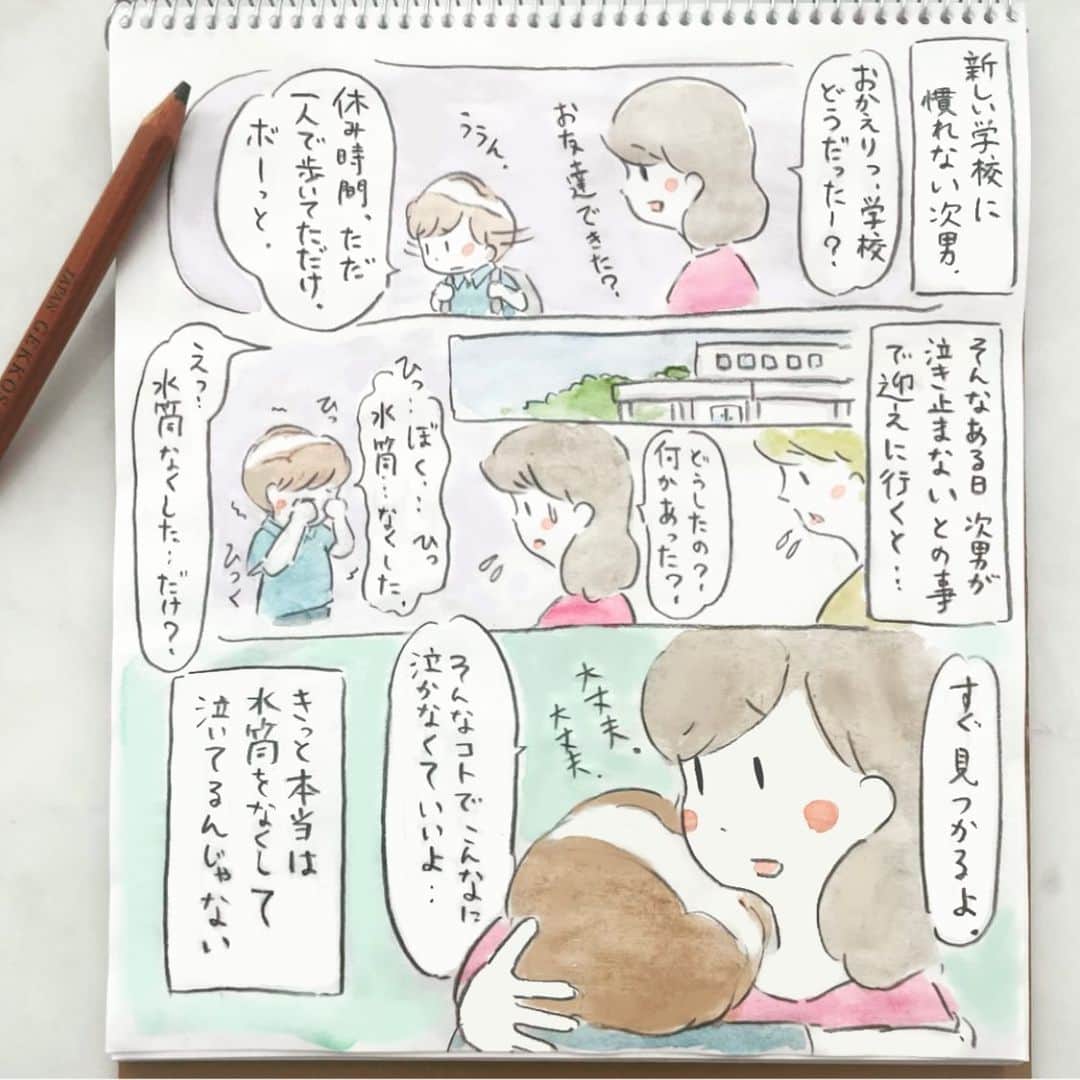 新しい学校に
慣れない次男.
おかえりっ、学校
どうだったー?
お友達できた?
ううん.
休み時間、ただ
一人で歩いてただけ.
ボーっと.
そんなある日 次男が
泣き止まないとの事
で迎えに行くと…
どうしたの?
何かあった?
ひっ…ぼく… ひっ
水筒…なくした.
ひっ
ひっく
えっ…
水筒なくした…だけ?
すぐ見つかるよ.
大丈夫.
大丈夫.
そんなコトでこんなに
泣かなくていいよ…
きっと本当は
水筒をなくして
泣いてるんじゃない
JAPAN GEKKOS